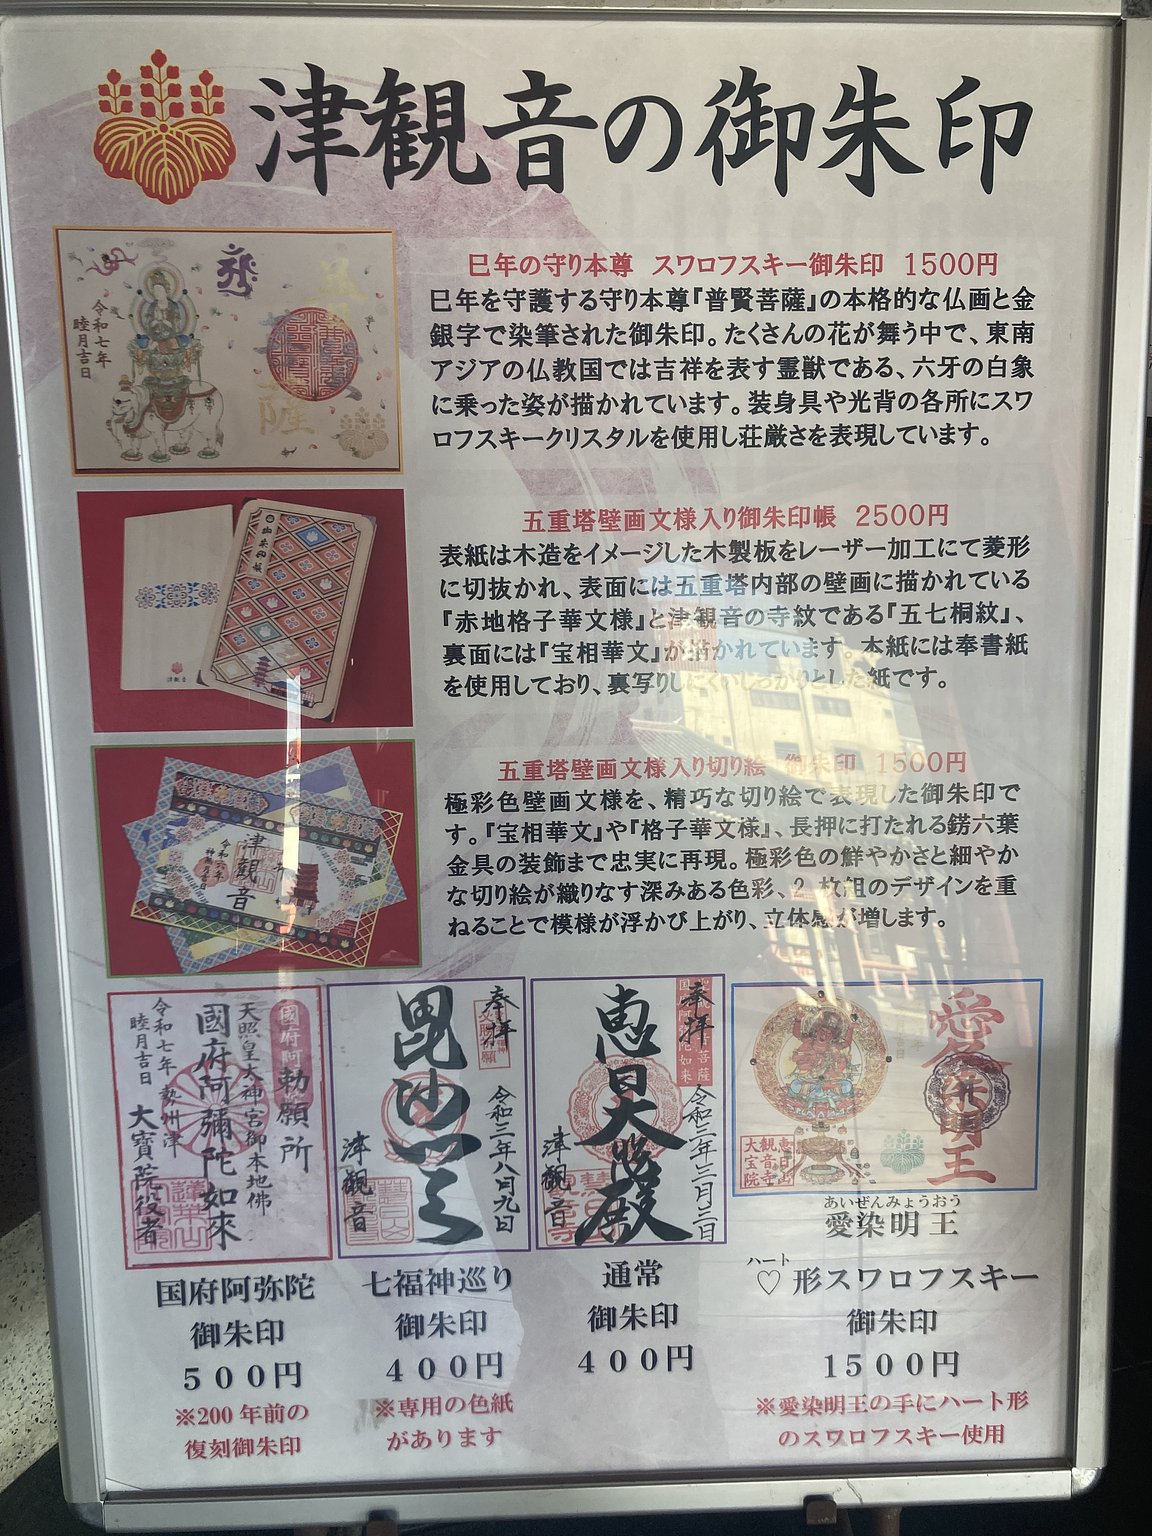 津観音の御朱印
巳年の守り本尊 スワロフスキー御朱印 1500円
巳年を守護する守り本尊『普賢菩薩』の本格的な仏画と金
銀字で染筆された御朱印。たくさんの花が舞う中で、東南
アジアの仏教国では吉祥を表す霊獣である、六牙の白象
に乗った姿が描かれています。装身具や光背の各所にスワ
ロフスキークリスタルを使用し荘厳さを表現しています。
令和七年
睦月吉日
五重塔壁画文様入り御朱印帳 2500円
表紙は木造をイメージした木製板をレーザー加工にて菱形
に切抜かれ、表面には五重塔内部の壁画に描かれている
『赤地格子華文様』と津観音の寺紋である『五七桐紋』、
裏面には『宝相華文』が描かれています。本紙には奉書紙
を使用しており、裏写りしにくいしっかりとした紙です。
御朱印帳
津観音
五重塔壁画文様入り切り絵 御朱印 1500円
極彩色壁画文様を、精巧な切り絵で表現した御朱印で
す。『宝相華文』や『格子華文様』、長押に打たれる錺六葉
金具の装飾まで忠実に再現。極彩色の鮮やかさと細やか
な切り絵が織りなす深みある色彩、2枚組のデザインを重
ねることで模様が浮かび上がり、立体感が増します。
津観音
國府阿勅願所
天照皇大神宮御本地佛
國府阿彌陀如來
勢州津
大寶院役者
令和七年
睦月吉日
国府阿弥陀
御朱印
500円
※200年前の
復刻御朱印
奉拝
毘沙門天
令和三年八月九日
津観音
七福神巡り
御朱印
400円
※専用の色紙
があります
奉拝
恵日大勝殿
令和三年三月三日
津観音
通常
御朱印
400円
愛染明王
恵日山
観音寺
大宝院
あいぜんみょうおう
愛染明王
ハート
♡形スワロフスキー
御朱印
1500円
※愛染明王の手にハート形
のスワロフスキー使用